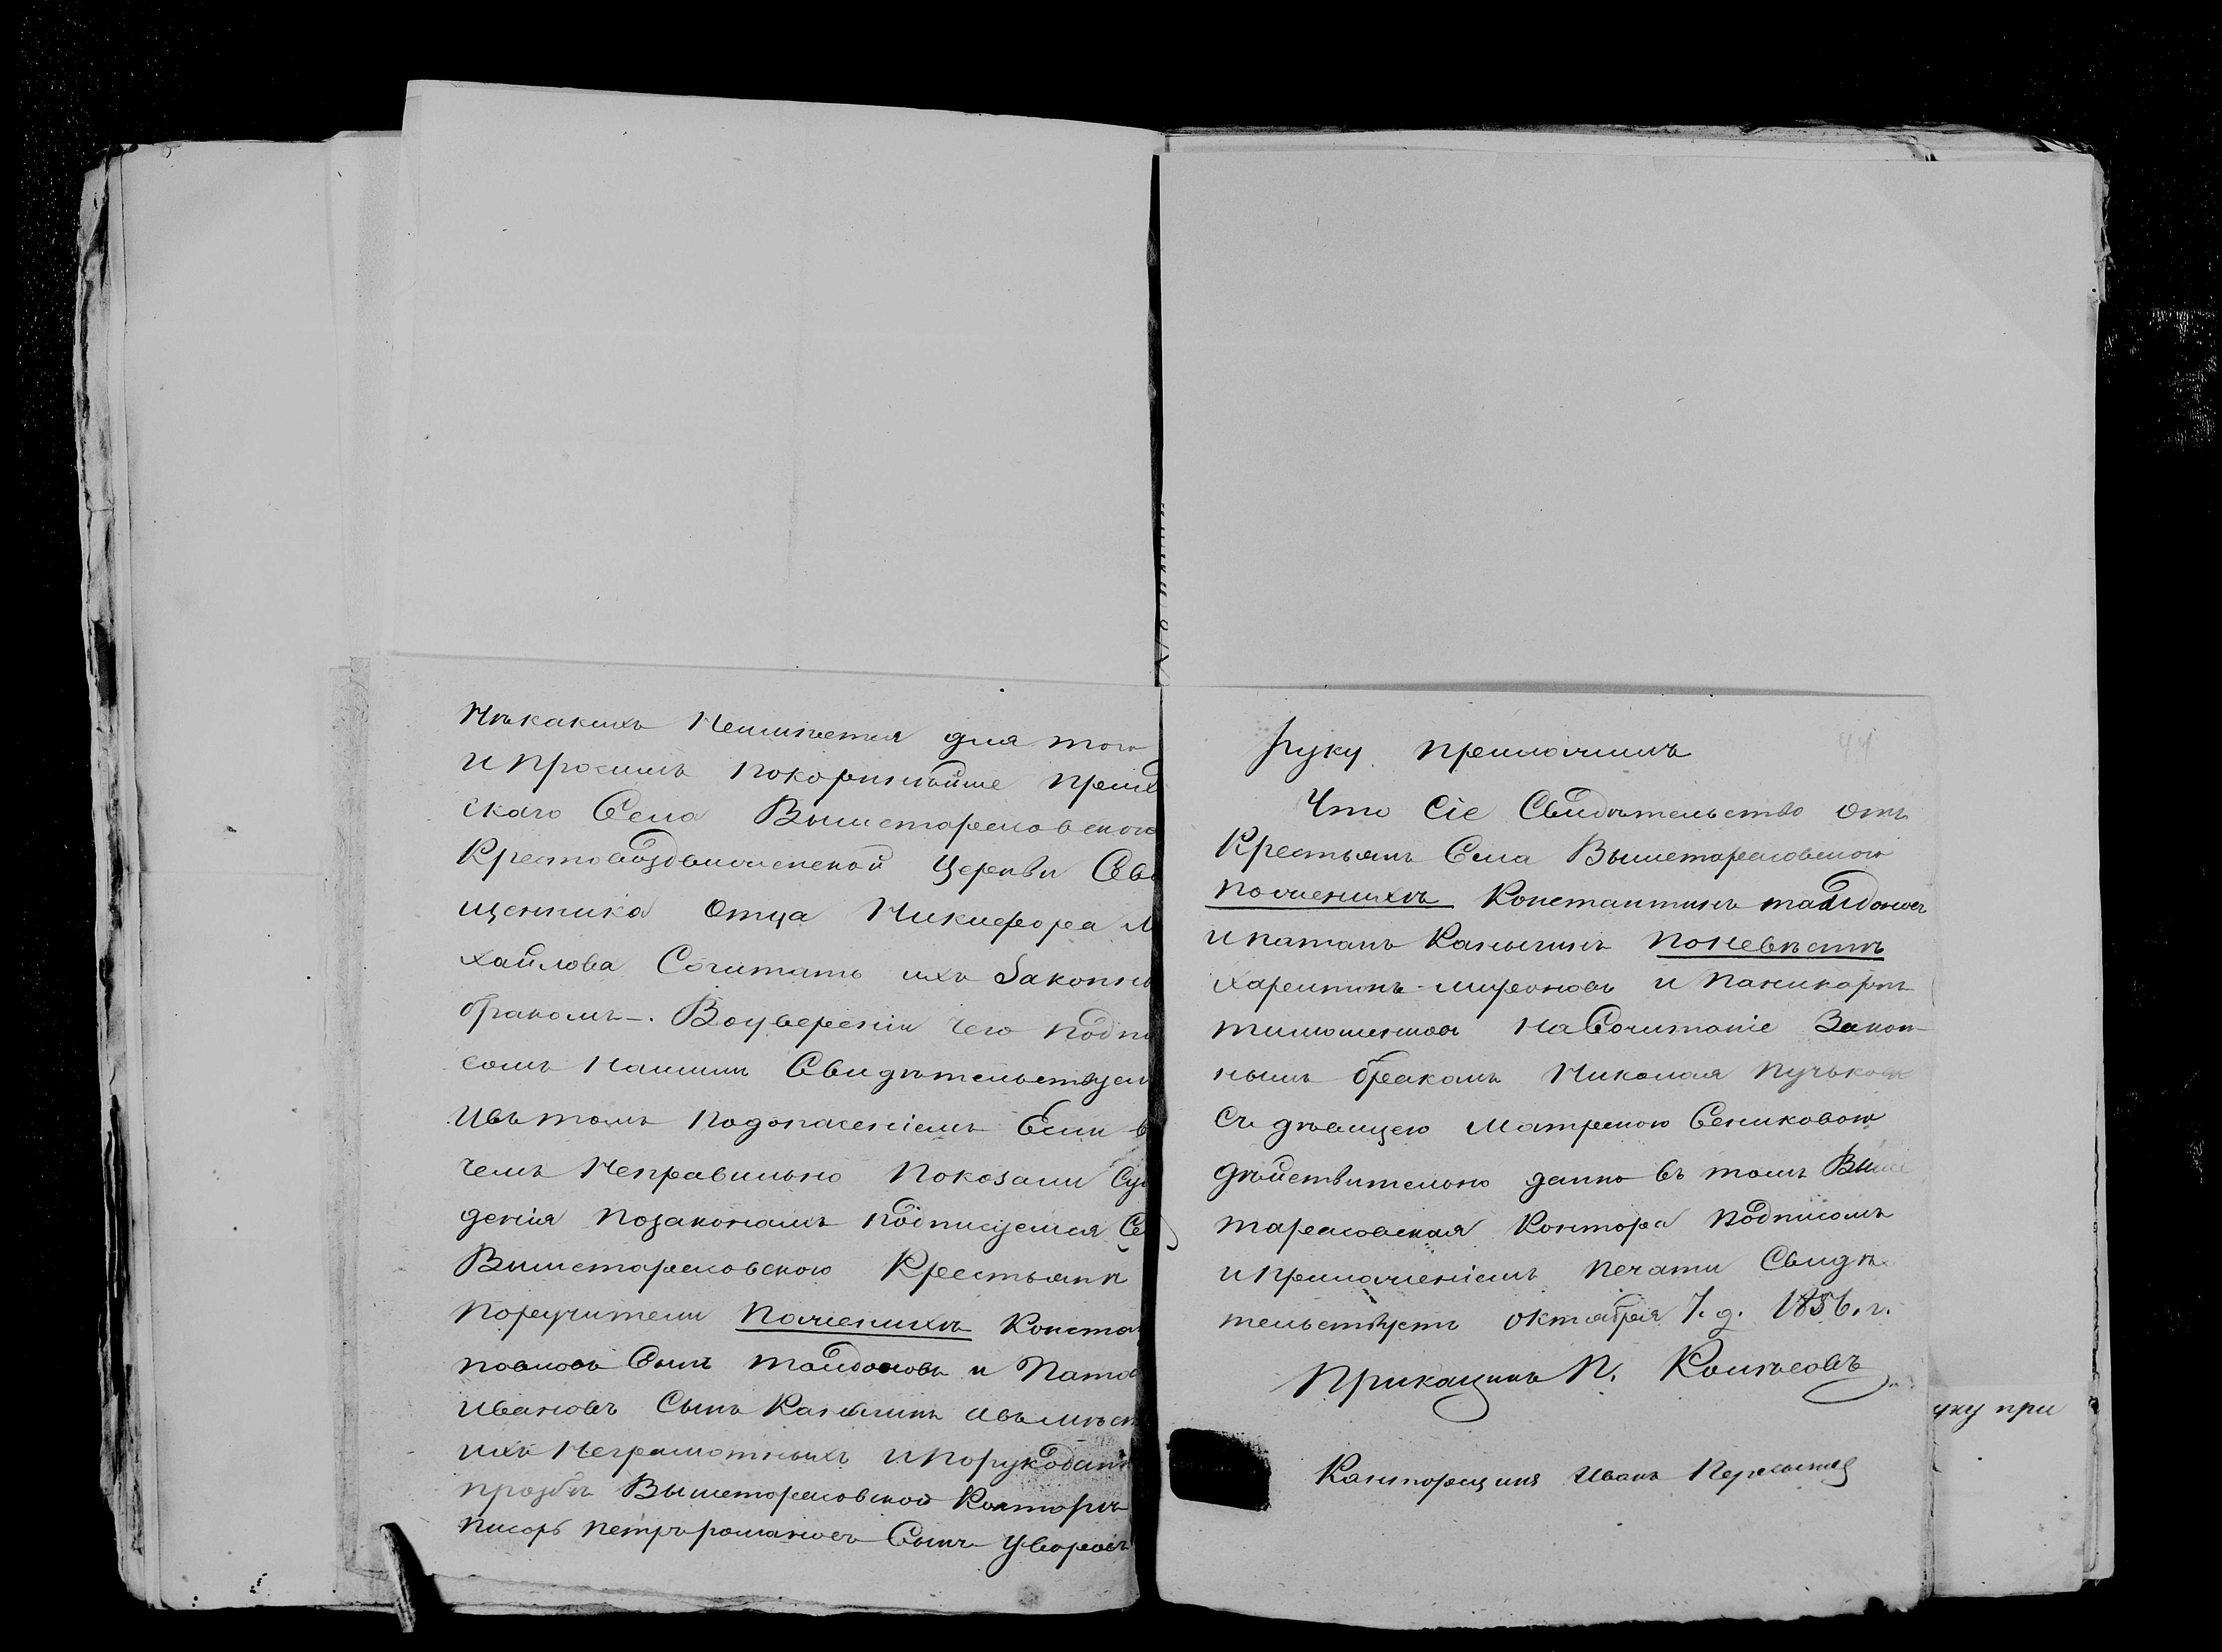 Нѣкакихъ Неимѣется для того
и просимъ покорнѣйше прих
скаго Села Вышетарасовского
Крестовоздвиженской Церкви Свя
щенника Отца Никифора М
хайлова Сочитать ихъ Законны
бракомъ. Воуверении чего подпи
сомъ Нашимъ Свидѣтельствуем
ивъ томъ подопасеніемъ Если в
чемъ Неправильно Показали Су
денія позаконамъ подписуемся Се
Вышетарасовского Крестьянъ
Поручители Поженихѣ Конста
повловъ Сынъ тайдоновъ и Пата
Ивановъ Сынъ Каныгинъ авъмѣст
ихъ Неграмотныхъ ипорукодан
прозбѣ Вышетарасовской Конторы
писаръ петръ романовъ Сынъ Уваровъ
руку преложилъ
44
Что Сіе Свидѣтельство отъ
Крестьянъ Села Вышетарасовского
поженихѣ Константинъ тайдоновъ
ипатапъ Каныгинъ поневѣстѣ
харитинъ мироновъ и Паникартъ
тимошенковъ НаСочитаніе Закон-
нымъ бракомъ Николая пучькова
Съ дѣвицею Матреною Сениковою
дѣйствительно данно въ томъ Выше
тарасовская Контора подписомъ
ипреложеніемъ печати Свидѣ-
тельствуетъ октября 7. д. 1856. г.
Прикащикъ П.
Канторщикъ Иванъ
уку при